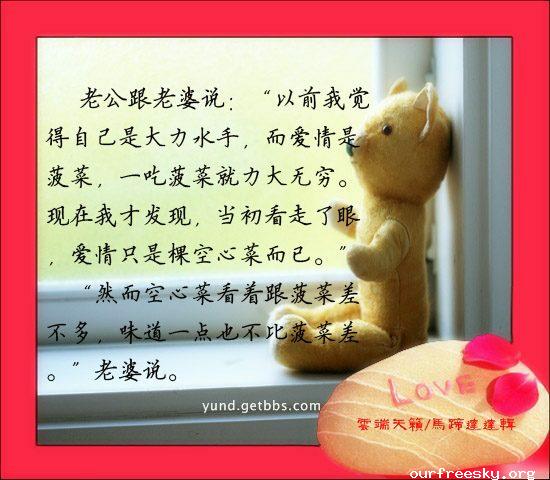 老公跟老婆说：“以前我觉
得自己是大力水手，而爱情是
菠菜，一吃菠菜就力大无穷。
现在我才发现，当初看走了眼
，爱情只是棵空心菜而已。”
“然而空心菜看着跟菠菜差
不多，味道一点也不比菠菜差
。”老婆说。
yund.getbbs.com
LOVE
雲端天籟/馬蹄達達輯
ourfreesky.org